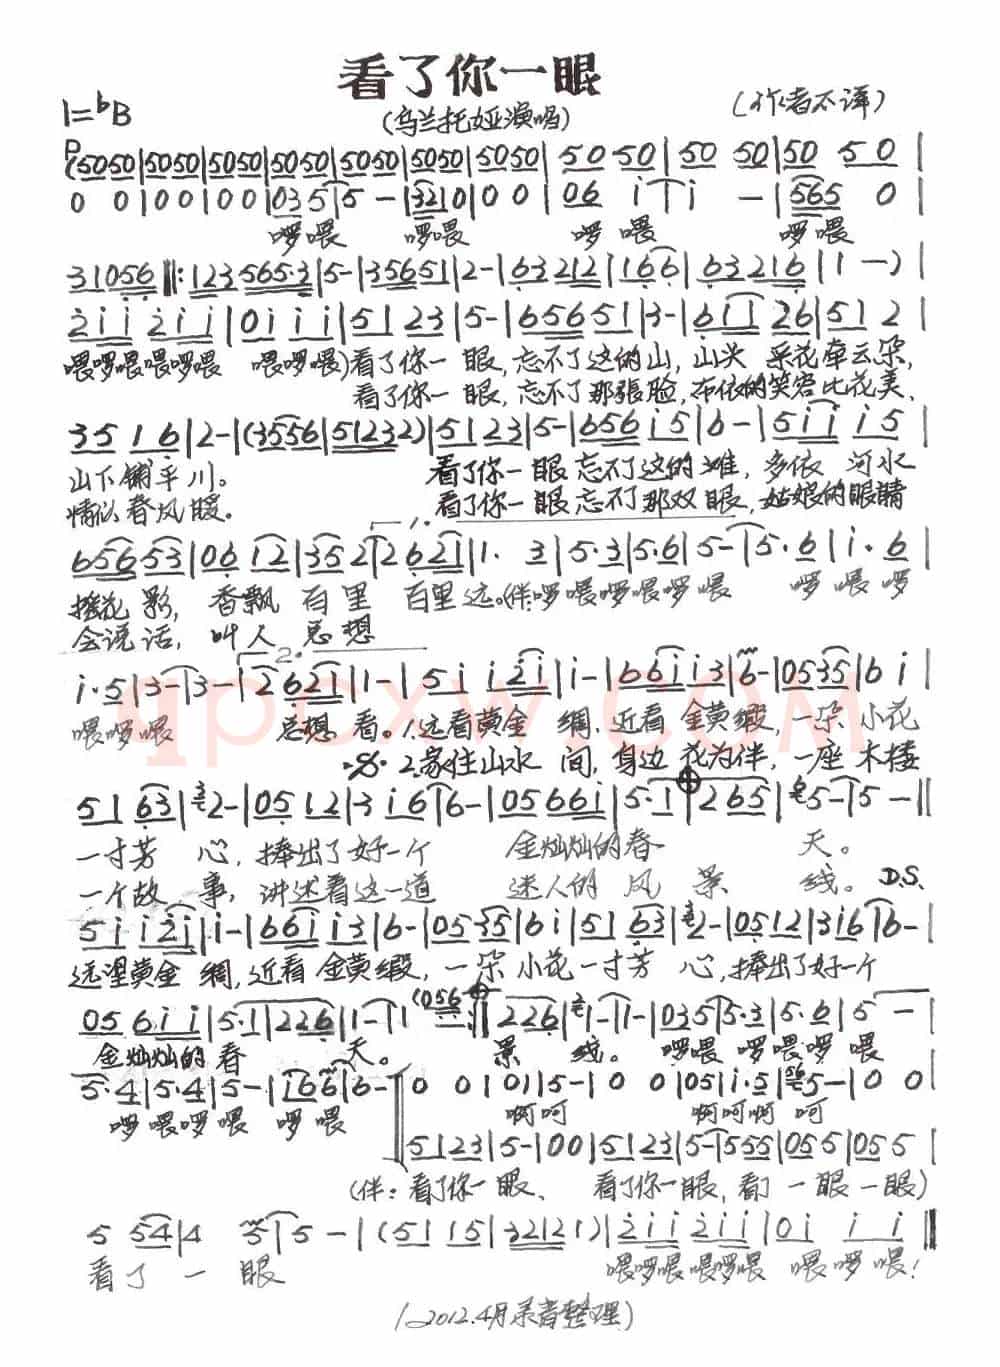 看了你一眼
1=ᵇB
(乌兰托娅演唱)
(作者不详)
P
(5050|5050|5050|5050|5050|5050|5050|50 50|50 50|50 50|
0 0|00|00|035|5-|3210|00|06 i|i -|565 0|
啰喂 啰喂 啰喂 啰喂
31056‖:123565·3|5-|35651|2-|63212|166|63216|1-)|
2ii 2ii|0iii|5123|5-|65651|3-|611 26|51 2|
喂啰喂喂啰喂 喂啰喂)看了你一眼,忘不了这的山,山头 采花牵云朵,
看了你一眼,忘不了那張脸,布依的笑容比花美、
351 6|2-|(33556|51232)|5123|5-|656i5|6-|5ii i5|
山下铺平川。 看了你一眼忘不了这的滩,多依 河水
情似春风暖。 看了你一眼忘不了那双眼,姑娘的眼睛
1.
65653|06 12|352|2621|1· 3|5·3|5·6|5-|5·6|i·6|
摇花影, 香飘百里 百里远。(伴:啰喂啰喂啰喂 啰喂啰
会说话, 叫人思想
2.
i·5|3-|3-|2621|1-|5i i2i|i-|66ii3|6-|0535|6i|
喂啰喂 思想 看。1.远看黄金 绸,近看金黄缎,一朵小花
qpcxw.COM
2.家住山水 间,身边花为伴,一座木楼
51 63|2-|0512|3 i6|6-|0566i|5·1|265|5-|5-‖
一寸芳 心,捧出了好一个 金灿灿的春 天。
一个故 事,讲述着这一道 迷人的风景 线。 D.S.
5i i2i|i-|66ii3|6-|0535|6i|51 63|2-|0512|3i6|6-|
远望黄金 绸,近看金黄缎,一朵小花一寸芳 心,捧出了好一个
056ii|5·1|226|1-|1 (056:‖226|1-|1-|035|5·3|5·6|5 -
金灿灿的春 天。 景 线。 啰喂 啰喂啰喂
5·4|5·4|5-|i66|6-|0 0|01|5-|0 0|051|i·5|5-|0 0
啰喂啰喂 啰喂 啊呵 啊呵啊呵
5123|5-|00|5123|5-|555|055|055|
(伴:看了你一眼、 看了你一眼,看了一眼一眼)
5 54|4 5|5 -|(51 15|32121)|2ii 2ii|0i i i‖
看了一 眼 喂啰喂喂啰喂 喂啰喂!
(2012.4月录音整理)